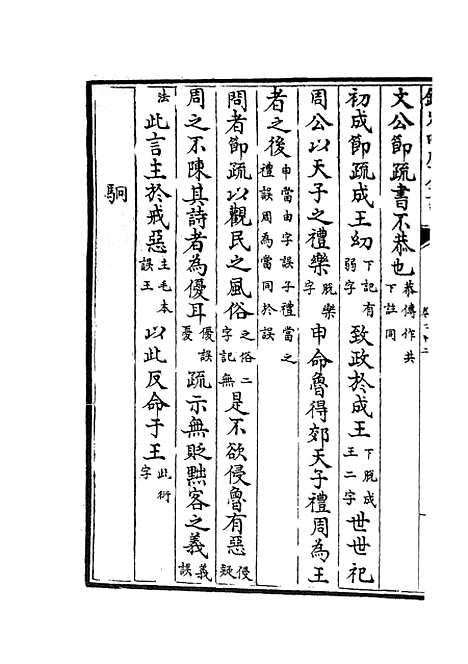 文公節疏書不恭也恭傳作共下註同
初成節疏成王幼下記有弱字致政於成王下脫成王二字世世祀
周公以天子之禮樂脫樂字申命魯得郊天子禮周為王
者之後申當由字誤子禮當之禮誤周為當同於誤
問者節疏以觀民之風俗之俗二字記無是不欲侵魯有惡侵疑
周之不陳其詩者為優耳優誤憂疏示無貶黜客之義義誤
法此言主於戒惡主毛本誤王以此反命于王此衍字
駉